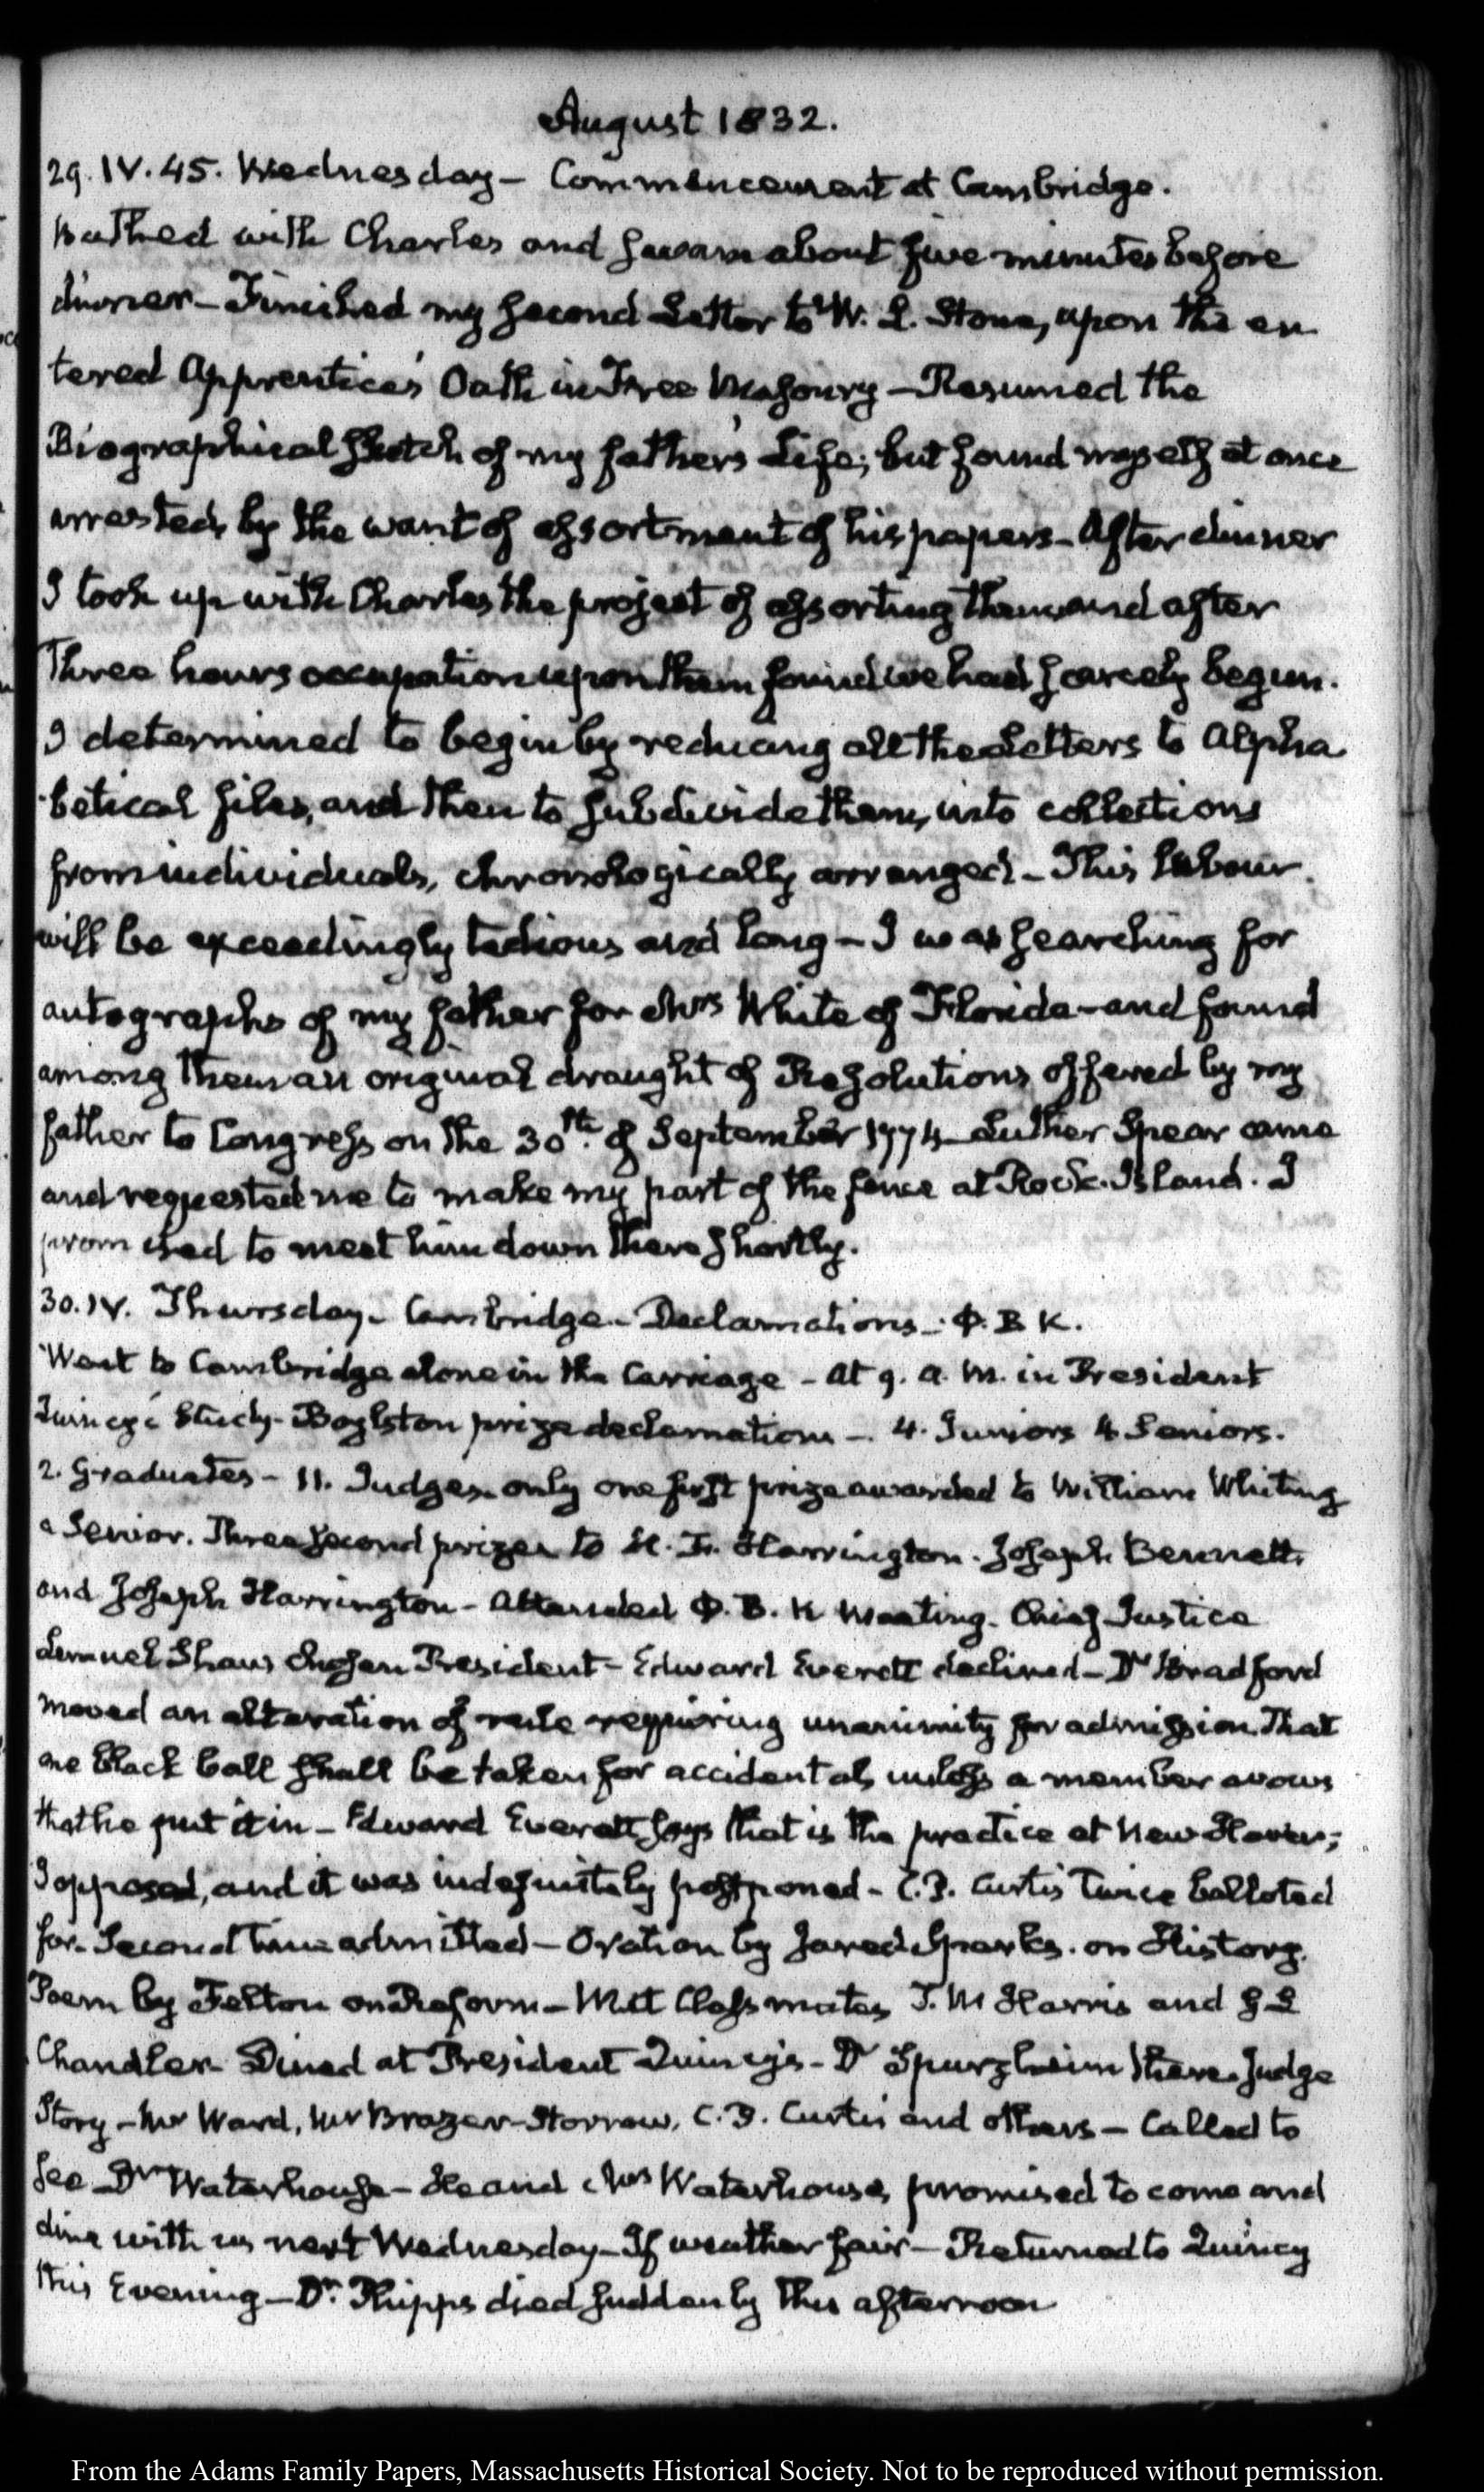 August 1832.
29. IV. 45. Wednesday – Commencement at Cambridge.
Bathed with Charles and swam about five minutes before
dinner – Finished my second Letter to W. L. Stone, upon the en
tered Apprentice's Oath in Free Masonry – Resumed the
Biographical sketch of my father's Life; but found myself at once
arrested, by the want of assortment of his papers – After dinner
I took up with Charles the project of assorting them, and after
Three hours occupation upon them found we had scarcely begun.
I determined to begin by reducing all the Letters to Alpha
betical files, and then to subdivide them, into collections
from individuals, chronologically arranged – This labour
will be exceedingly tedious and long – I was searching for
autographs of my father for Mrs White of Florida – and found
among them an original draught of Resolutions offered by my
father to Congress on the 30th. of September 1774 – Luther Spear came
and requested me to make my part of the fence at Rock-Island. I
promised to meet him down there shortly.
30. IV. Thursday – Cambridge – Declamations – Φ. B K.
Went to Cambridge alone in the Carriage – At 9. a. m. in President
Quincy's Study – Boylston prize declamations – 4. Juniors 4 Seniors.
2. Graduates – 11. Judges – only one first prize awarded to William Whiting
a Senior. Three second prizes to H. F. Harrington. Joseph Bennett,
and Joseph Harrington – Attended Φ. B. K meeting. Chief Justice
Lemuel Shaw chosen President – Edward Everett declined – Dr Bradford
moved an alteration of rule requiring unanimity for admission. That
one black ball shall be taken for accidental, unless a member avows
that he put it in – Edward Everett says that is the practice at New Haven;
I opposed, and it was indefinitely postponed – C. P. Curtis twice balloted
for. Second time admitted – Oration by Jared Sparks. on History.
Poem by Felton on Reform – Met Classmates T. M Harris and
Chandler – Dined at President Quincy's – Dr Spurzheim there. Judge
Story – Mr Ward, Mr Brazer – Storrow, C. P. Curtis and others – Called to
see Dr Waterhouse – He and Mrs Waterhouse, promised to come and
dine with us next Wednesday – If weather fair – Returned to Quincy
this Evening – Dr. Phipps died suddenly this afternoon
From the Adams Family Papers, Massachusetts Historical Society. Not to be reproduced without permission.